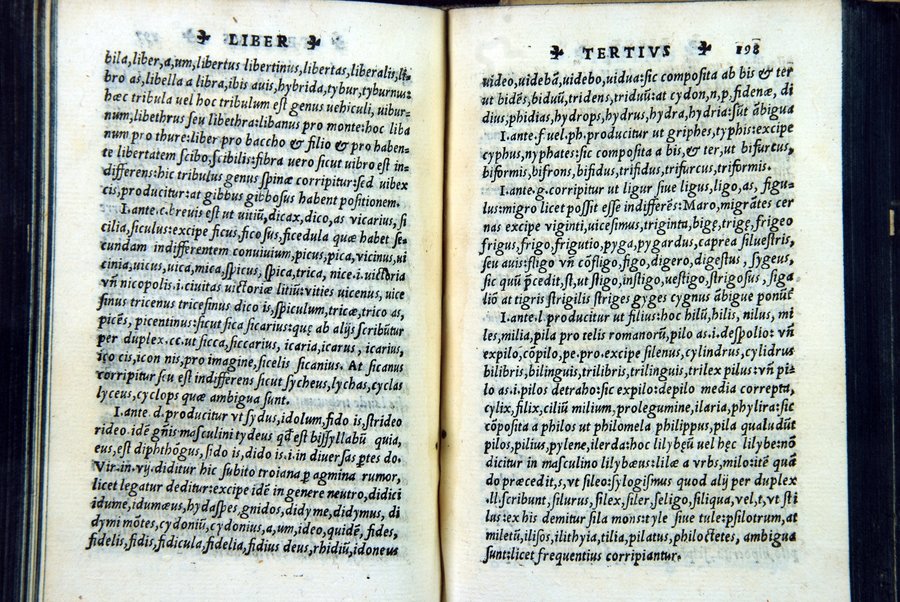 LIBER
bila,liber,a,um,libertus libertinus,libertas,liberalis,li-
bro as,libella a libra,ibis auis,hybrida,tybur,tyburnus:
hæc tribula uel hoc tribulum est genus uehiculi, uibur-
num,libethrus seu libethra:libanus pro monte:hoc liba
num pro thure:liber pro baccho & filio & pro haben-
te libertatem scibo,scibilis:fibra uero sicut uibro est in-
differens:hic tribulus genus spinæ corripitur:sed uibex
cis,producitur:at gibbus gibbosus habent positionem.
I.ante.c.breuis est ut uitiũ,dicax,dico,as vicarius, si
cilia,siculus:excipe ficus ficosus,ficedula quæ habet se-
cundam indifferentem conuiuium,picus,pica,vicinus,ui
cinia,uicus,uica,mica,spicus,spica,trica, nice.i.uictoria
vñ nicopolis.i.ciuitas uictoriæ litiũ:vities uicenus, uice
simus tricenus tricesimus dico is,spiculum,tricæ,trico as,
picẽs, picentinus:sicut sica sicarius:quę ab alijs scribũtur
per duplex.cc.ut sicca,siccarius, icaria,icarus, icarius,
ico cis,icon nis,pro imagine,sicelis sicanius. At sicanus
corripitur seu est indifferens sicut sycheus,lychas,cyclas
lyceus,cyclops quæ ambigua sunt.
I.ante.d.producitur vt sydus,idolum,fido is,strideo
rideo.idẽ gñis masculini tydeus qđ est bissyllabũ quia,
eus,est diphthõgus,fido is,dido is.i.in diuersas ꝑtes do.
Vir.in.vij.diditur hic subito troiana ꝑ agmina rumor,
licet legatur deditur:excipe idẽ in genere neutro,didici
idume,idumæus,hydaspes,gnidos,didyme,didymus, di
dymi mõtes,cydoniũ,cydonius,a,um,ideo,quidẽ, fides,
fidelis,fidis,fidicula,fidelia,fidius deus,rhidiũ,idoneus
TERTIVS 198
uideo,uidebã,uidebo,uidua:sic composita ab bis & ter
ut bidẽs,biduũ,tridens,triduũ:at cydon,n,p,fidenæ, di
dius,phidias,hydrops,hydrus,hydra,hydria:sũt ãbigua
I.ante.f uel.ph.producitur ut griphes,typhis:excipe
cyphus,nyphates:sic composita a bis,& ter,ut bifurtus,
biformis,bifrons,bifidus,trifidus,trifurcus,triformis.
I.ante.g.corripitur ut ligur siue ligus,ligo,as, figu-
lus:migro licet possit esse indifferẽs:Maro,migrãtes cer
nas excipe viginti,uicesimus,triginta,bigę,trigę,frigeo
frigus,frigo,frigutio,pyga,pygardus,caprea siluestris,
seu auis:fligo vñ cõfligo,figo,digero,digestus , sygeus,
sic quũ p̃cedit,st,ut stigo,instigo,uestigo,strigosus, siga
liõ at tigris strigilis striges gyges cygnus ãbigue ponũt͛
I.ante.l producitur ut filius:hoc hilũ,hilis, nilus, mi
les,milia,pila pro telis romanorũ,pilo as.i.despolio: vñ
expilo,cõpilo,pe.pro.excipe silenus,cylindrus,cylidrus
bilibris,bilinguis,trilibris,trilinguis,trilex pilus:vñ pi-
lo as.i.pilos detraho:sic expilo:depilo media correpta,
cylix,filix,ciliũ milium,prolegumine,ilaria,phylira:sic
cõposita a philos ut philomela philippus,pila qualudũt
pilos,pilius,pylene,ilerda:hoc lilybęũ uel hęc lilybe:nõ
dicitur in masculino lilybæus:lilæ a vrbs,milo:itẽ quã
do præcedit,s,vt sileo:syllogismus quod alij per duplex
.ll.scribunt,silurus,silex,siler,seligo,siliqua,vel,t,vt sti
lus:ex his demitur sila mons:tyle siue tule:psilotrum,at
miletũ,ilisos,ilithyia,tilia,pilatus,philoctetes, ambigua
sunt:licet frequentius corripiantur.